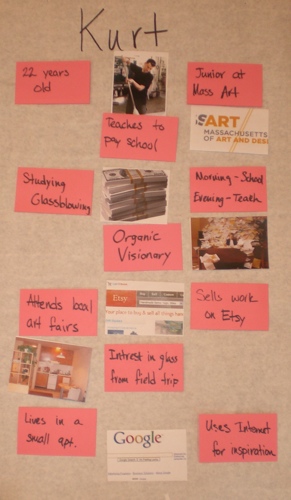 Kurt
22 years
old
Junior at
Mass Art
Teaches to
pay school
SART
MASSACHUSETTS
OF ART AND DES
Studying
Glassblowing
Morning-School
Evening-Teach
Organic
Visionary
Etsy
Your place to buy & sell all things
Attends local
art fairs
Sells work
on Etsy
Intrest in glass
from field trip
Lives in a
small apt.
Google
Uses Internet
for inspiration